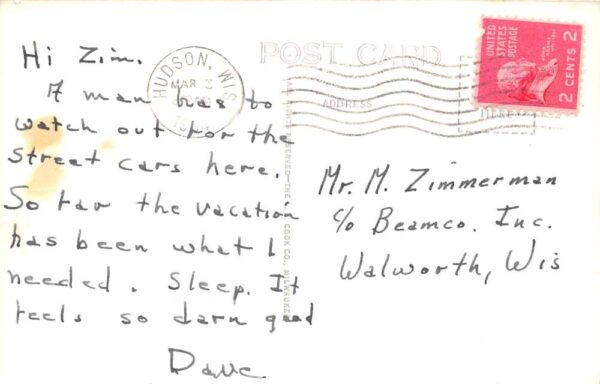 Hi Zim.
A man has to
watch out for the
Street cars here.
So far the vacation
has been what I
needed. Sleep. It
feels so darn good
Dave
HUDSON, WIS.
MAR
POST CARD
ADDRESS
HERE
UNITED
STATES
POSTAGE
2 CENTS 2
Mr. M. Zimmerman
c/o Beamco. Inc.
Walworth, Wis